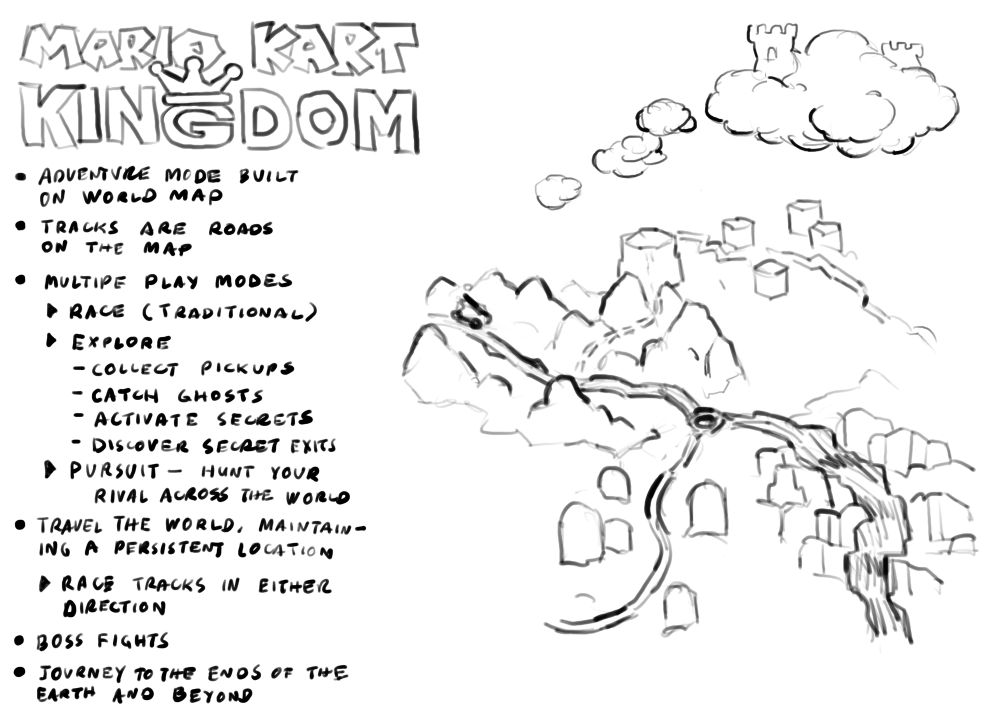 MARIO KART
KINGDOM
• ADVENTURE MODE BUILT
ON WORLD MAP
• TRACKS ARE ROADS
ON THE MAP
• MULTIPE PLAY MODES
▶ RACE (TRADITIONAL)
▶ EXPLORE
- COLLECT PICKUPS
- CATCH GHOSTS
- ACTIVATE SECRETS
- DISCOVER SECRET EXITS
▶ PURSUIT - HUNT YOUR
RIVAL ACROSS THE WORLD
• TRAVEL THE WORLD, MAINTAIN-
ING A PERSISTENT LOCATION
▶ RACE TRACKS IN EITHER
DIRECTION
• BOSS FIGHTS
• JOURNEY TO THE ENDS OF THE
EARTH AND BEYOND